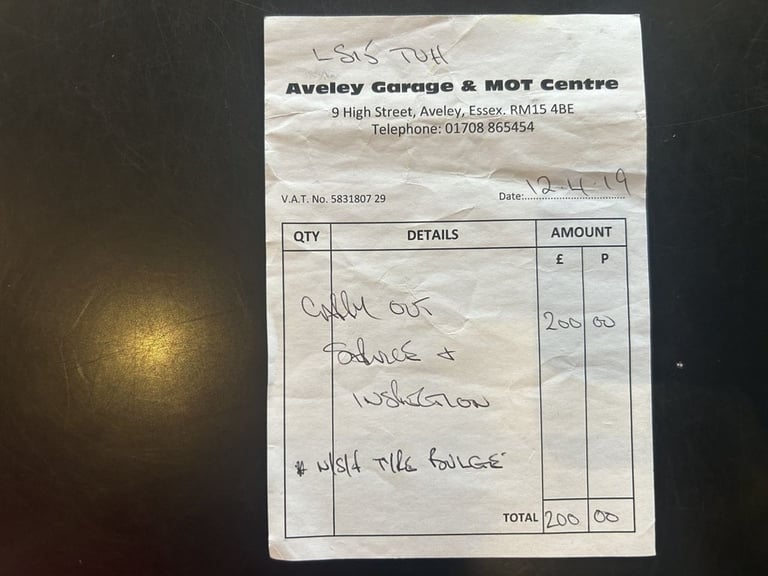 LS15 TUH
Aveley Garage & MOT Centre
9 High Street, Aveley, Essex. RM15 4BE
Telephone: 01708 865454
V.A.T. No. 5831807 29 Date: 12.4.19
QTY DETAILS AMOUNT
£ P
CARRY OUT 200 00
SERVICE &
INSPECTION
* N/S/F TYRE BULGE
TOTAL 200 00